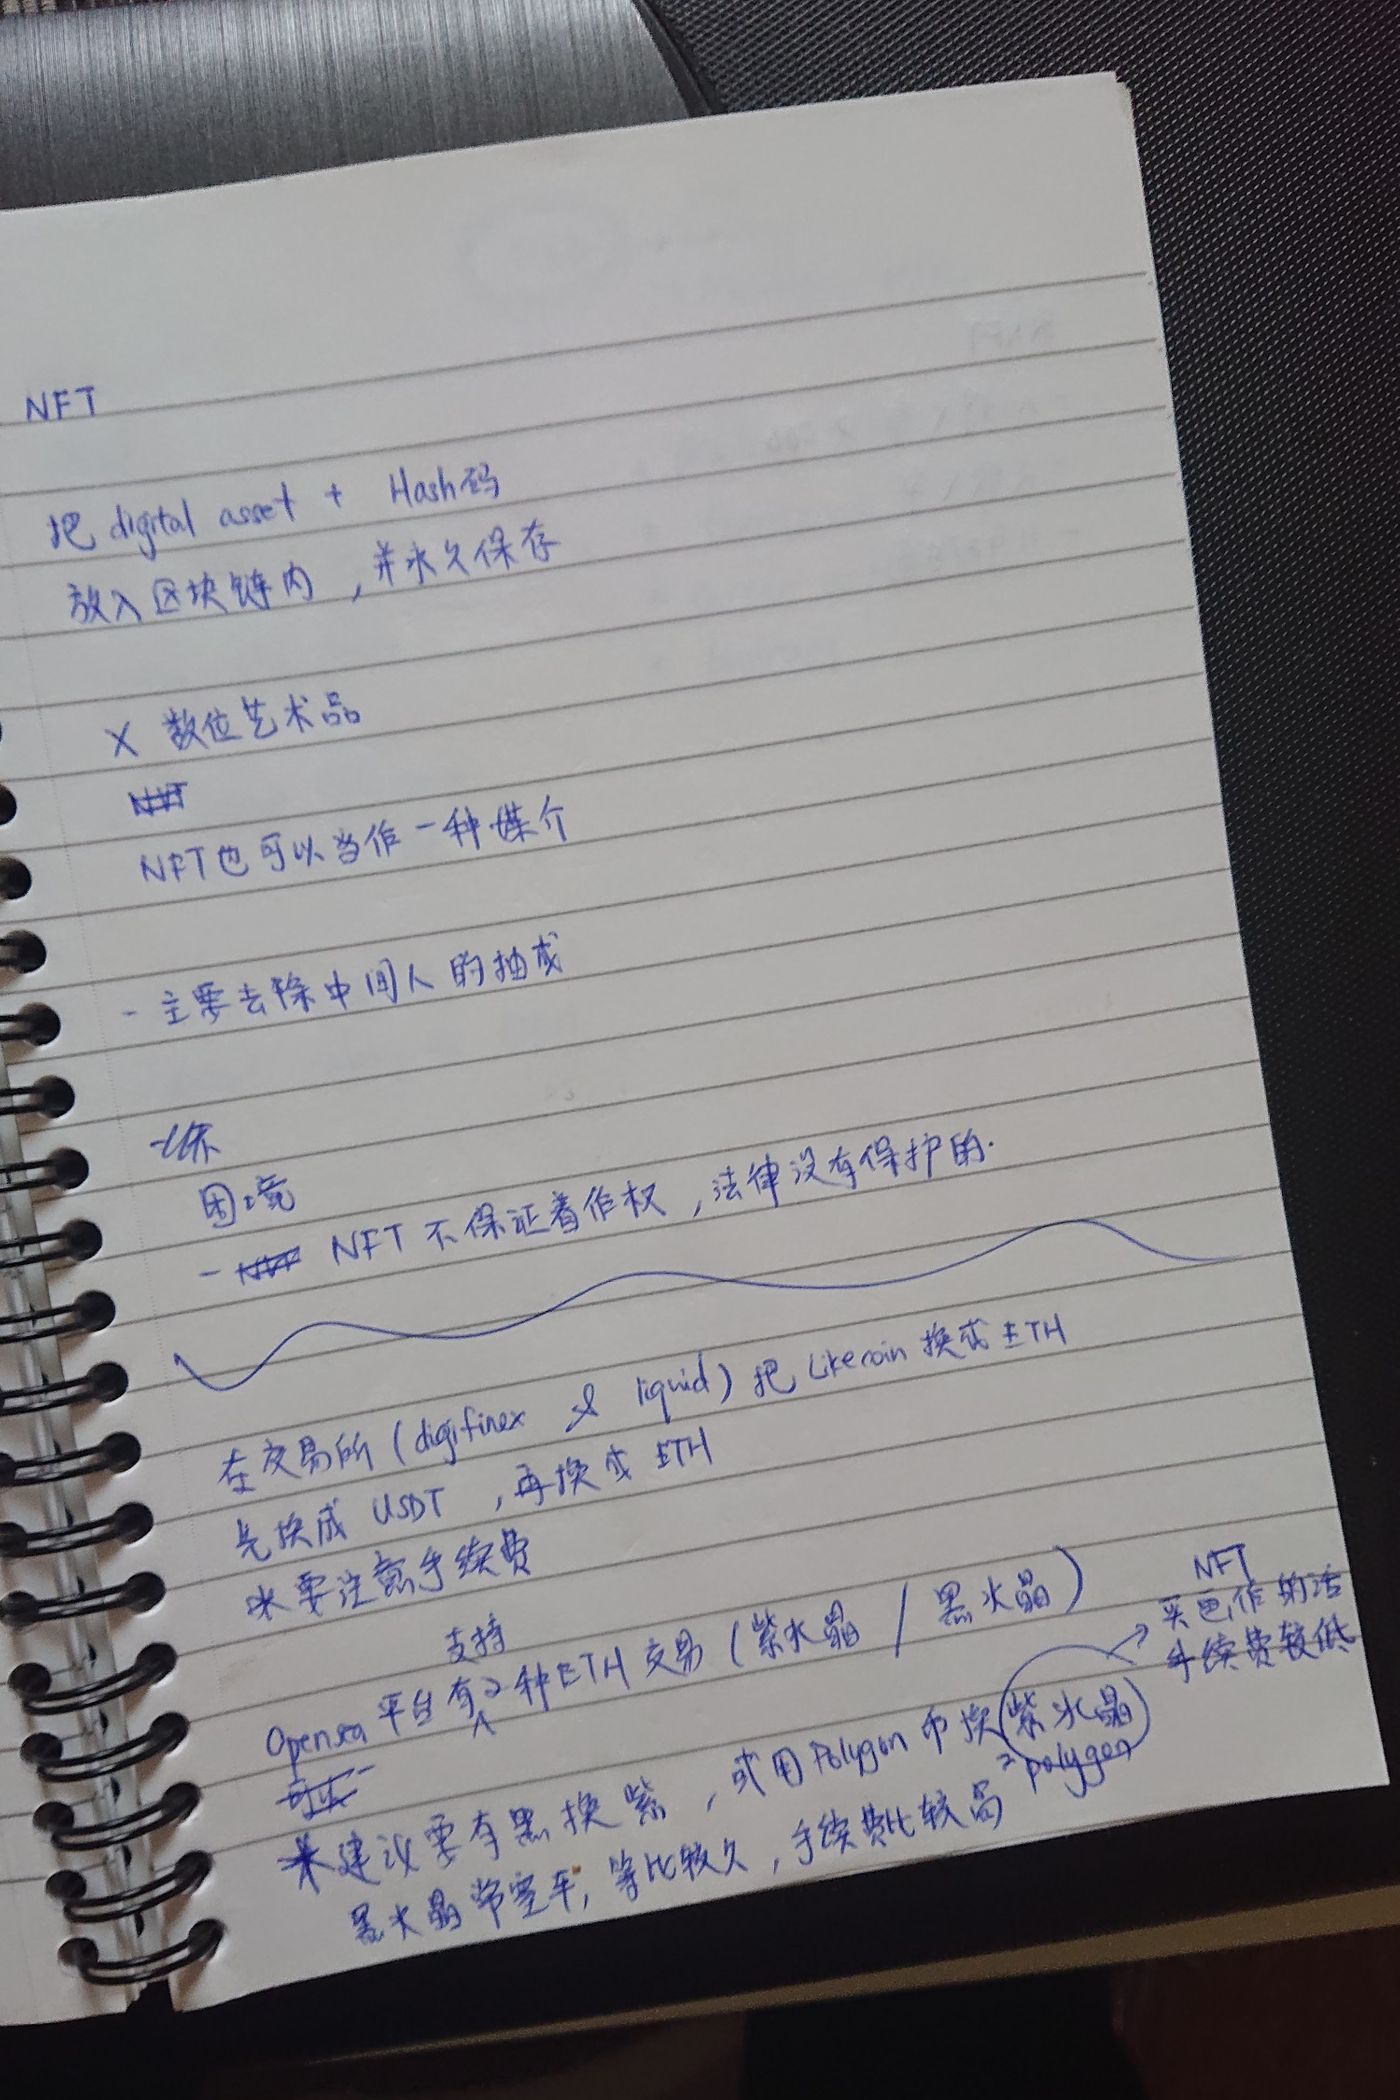 NFT
把 digital asset + Hash码
放入区块链内，并永久保存
X 数位艺术品
NFT也可以当作一种媒介
- 主要去除中间人的抽成
困境
- NFT 不保证着作权，法律没有保护的.
在交易所 (digifinex & liquid) 把 Likecoin 换成 ETH
兑换成 USDT ，再换成 ETH
※要注意手续费
支持
Opensea 平台有2种ETH交易 (紫水晶 / 黑水晶)
NFT
买卖作的话
手续费较低
*建议要有黑换紫 ，或用Polygon币换紫水晶
polygon
黑水晶常塞车, 等比较久，手续费比较高